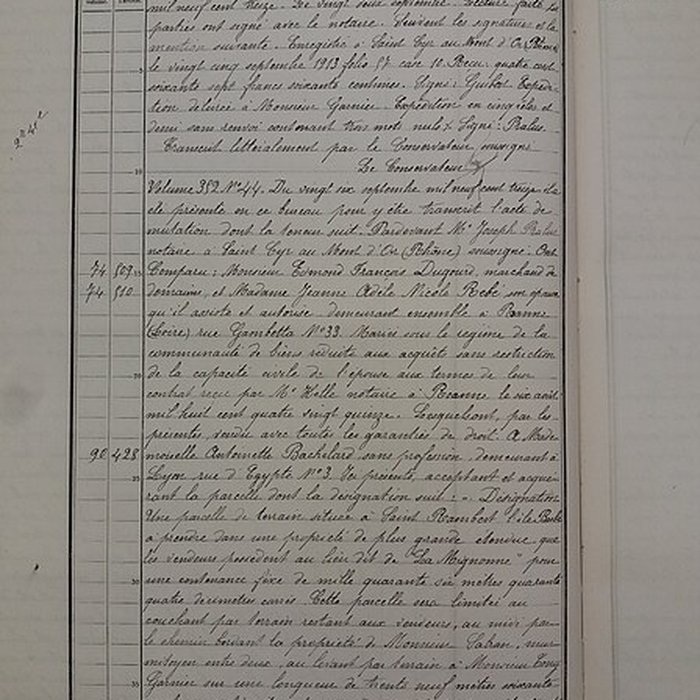 mil neuf cent treize. Le vingt sous septembre. Lecture faite les
parties ont signé avec le notaire. Suivent les signatures et la
mention suivante. Enregistré à Saint Cyr au Mont d'Or Rhône
le vingt cinq septembre 1913 folio 57 case 10. Recu: quatre cent
soixante sept francs soixante centimes. Signé: Guibot. Expédi-
tion délivrée à Monsieur Garnier. Expédition en cinq rôles et
demi sans renvoi contenant trois mots nuls. Signé: Pralus.
Transcrit littéralement par le Conservateur soussigné
Le Conservateur
2me 4re
Volume 352 No 44. Du vingt six septembre mil neuf cent treize. il a
été présenté en ce bureau pour y être transcrit l'acte de
mutation dont la teneur suit: Pardevant Me Joseph Pralus
notaire à Saint Cyr au Mont d'Or (Rhône) soussigné. Ont
74 509 Comparu: Monsieur Edmond François Dugourd, marchand de
74 510 domaine, et Madame Jeanne Adèle Nicole Rebé son épouse
qu'il assiste et autorise demeurant ensemble à Roanne
(Loire) rue Gambetta No 33. Mariés sous le régime de la
communauté de biens réduite aux acquêts sans restriction
de la capacité civile de l'épouse aux termes de leur
contrat reçu par Me Hélle notaire à Roanne le six août
mil huit cent quatre vingt quinze. Lesquels ont, par les
présentes, vendu avec toutes les garanties de droit. A Made
90 428 moiselle Antoinette Bachelard sans profession, demeurant à
Lyon rue d'Egypte No 3. Ici présente, acceptant et acqué-
rant la parcelle dont la désignation suit: Désignation
Une parcelle de terrain située à Saint Rambert l'île Barbe
à prendre dans une propriété de plus grande étendue que
les vendeurs possèdent au lieu dit de "La Mignonne" pour
une contenance fixe de mille quarante six mètres quarante
quatre décimètres carrés. Cette parcelle sera limitée au
couchant par terrain restant aux vendeurs, au midi par
le chemin bordant la propriété de Monsieur Sabran, mur
mitoyen entre deux, au levant par terrain à Monsieur
Garnier sur une longueur de trente neuf mètres soixante